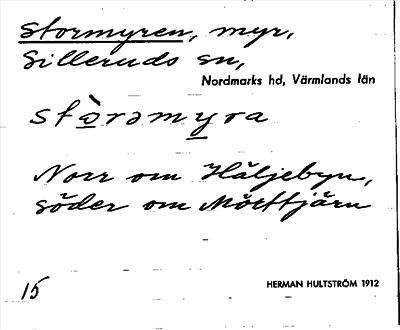 Stormyren, myr,
Silleruds sn,
Nordmarks hd, Värmlands län
Norr om Häljebyn,
söder om Mörttjärn
15
HERMAN HULTSTRÖM 1912